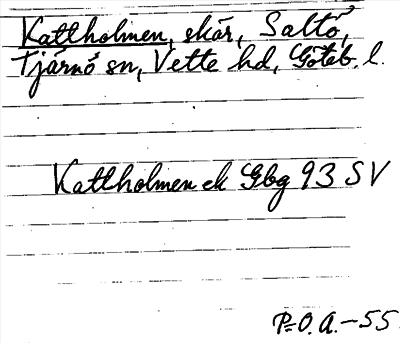 Kattholmen, skär, Saltö,
Tjärnö sn, Vette hd, Göteb. l.
Kattholmen ek Gbg 93 SV
P=O. A. -55